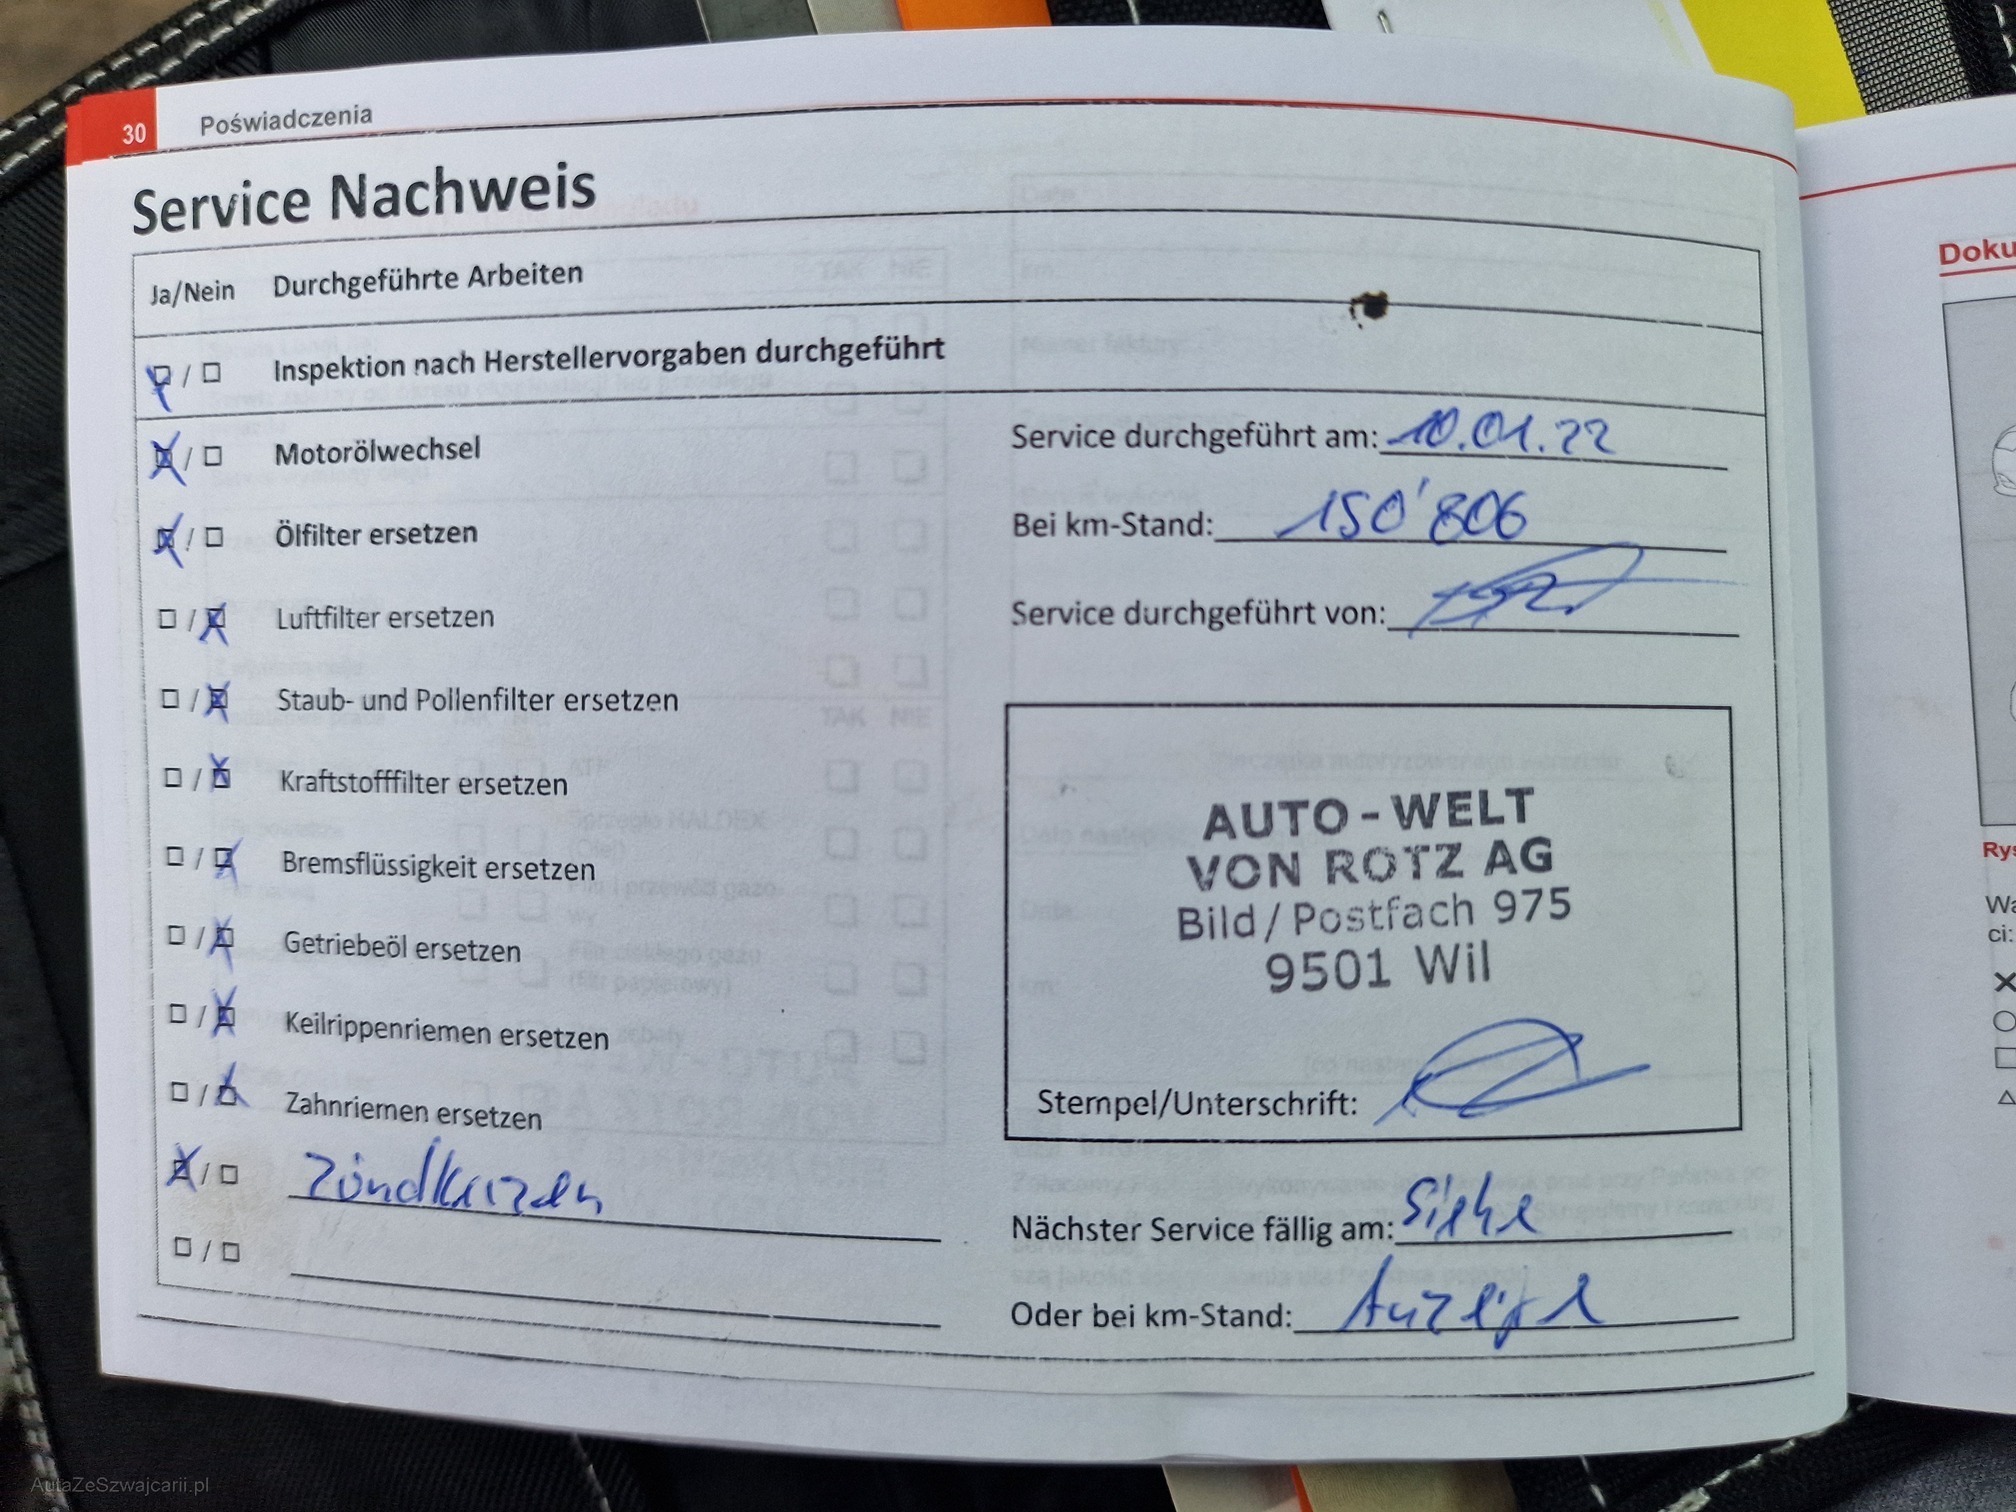 30 Poświadczenia
Service Nachweis
Ja/Nein Durchgeführte Arbeiten
Inspektion nach Herstellervorgaben durchgeführt
Motorölwechsel
Ölfilter ersetzen
Luftfilter ersetzen
Staub- und Pollenfilter ersetzen
Kraftstofffilter ersetzen
Bremsflüssigkeit ersetzen
Getriebeöl ersetzen
Keilrippenriemen ersetzen
Zahnriemen ersetzen
Zündkerzen
Service durchgeführt am: 10.01.22
Bei km-Stand: 150'806
Service durchgeführt von:
AUTO-WELT
VON ROTZ AG
Bild / Postfach 975
9501 Wil
Stempel/Unterschrift:
Nächster Service fällig am: Siehe
Oder bei km-Stand: Anzeige
Doku
Rys
Wa
ci:
AutaZeSzwajcarii.pl